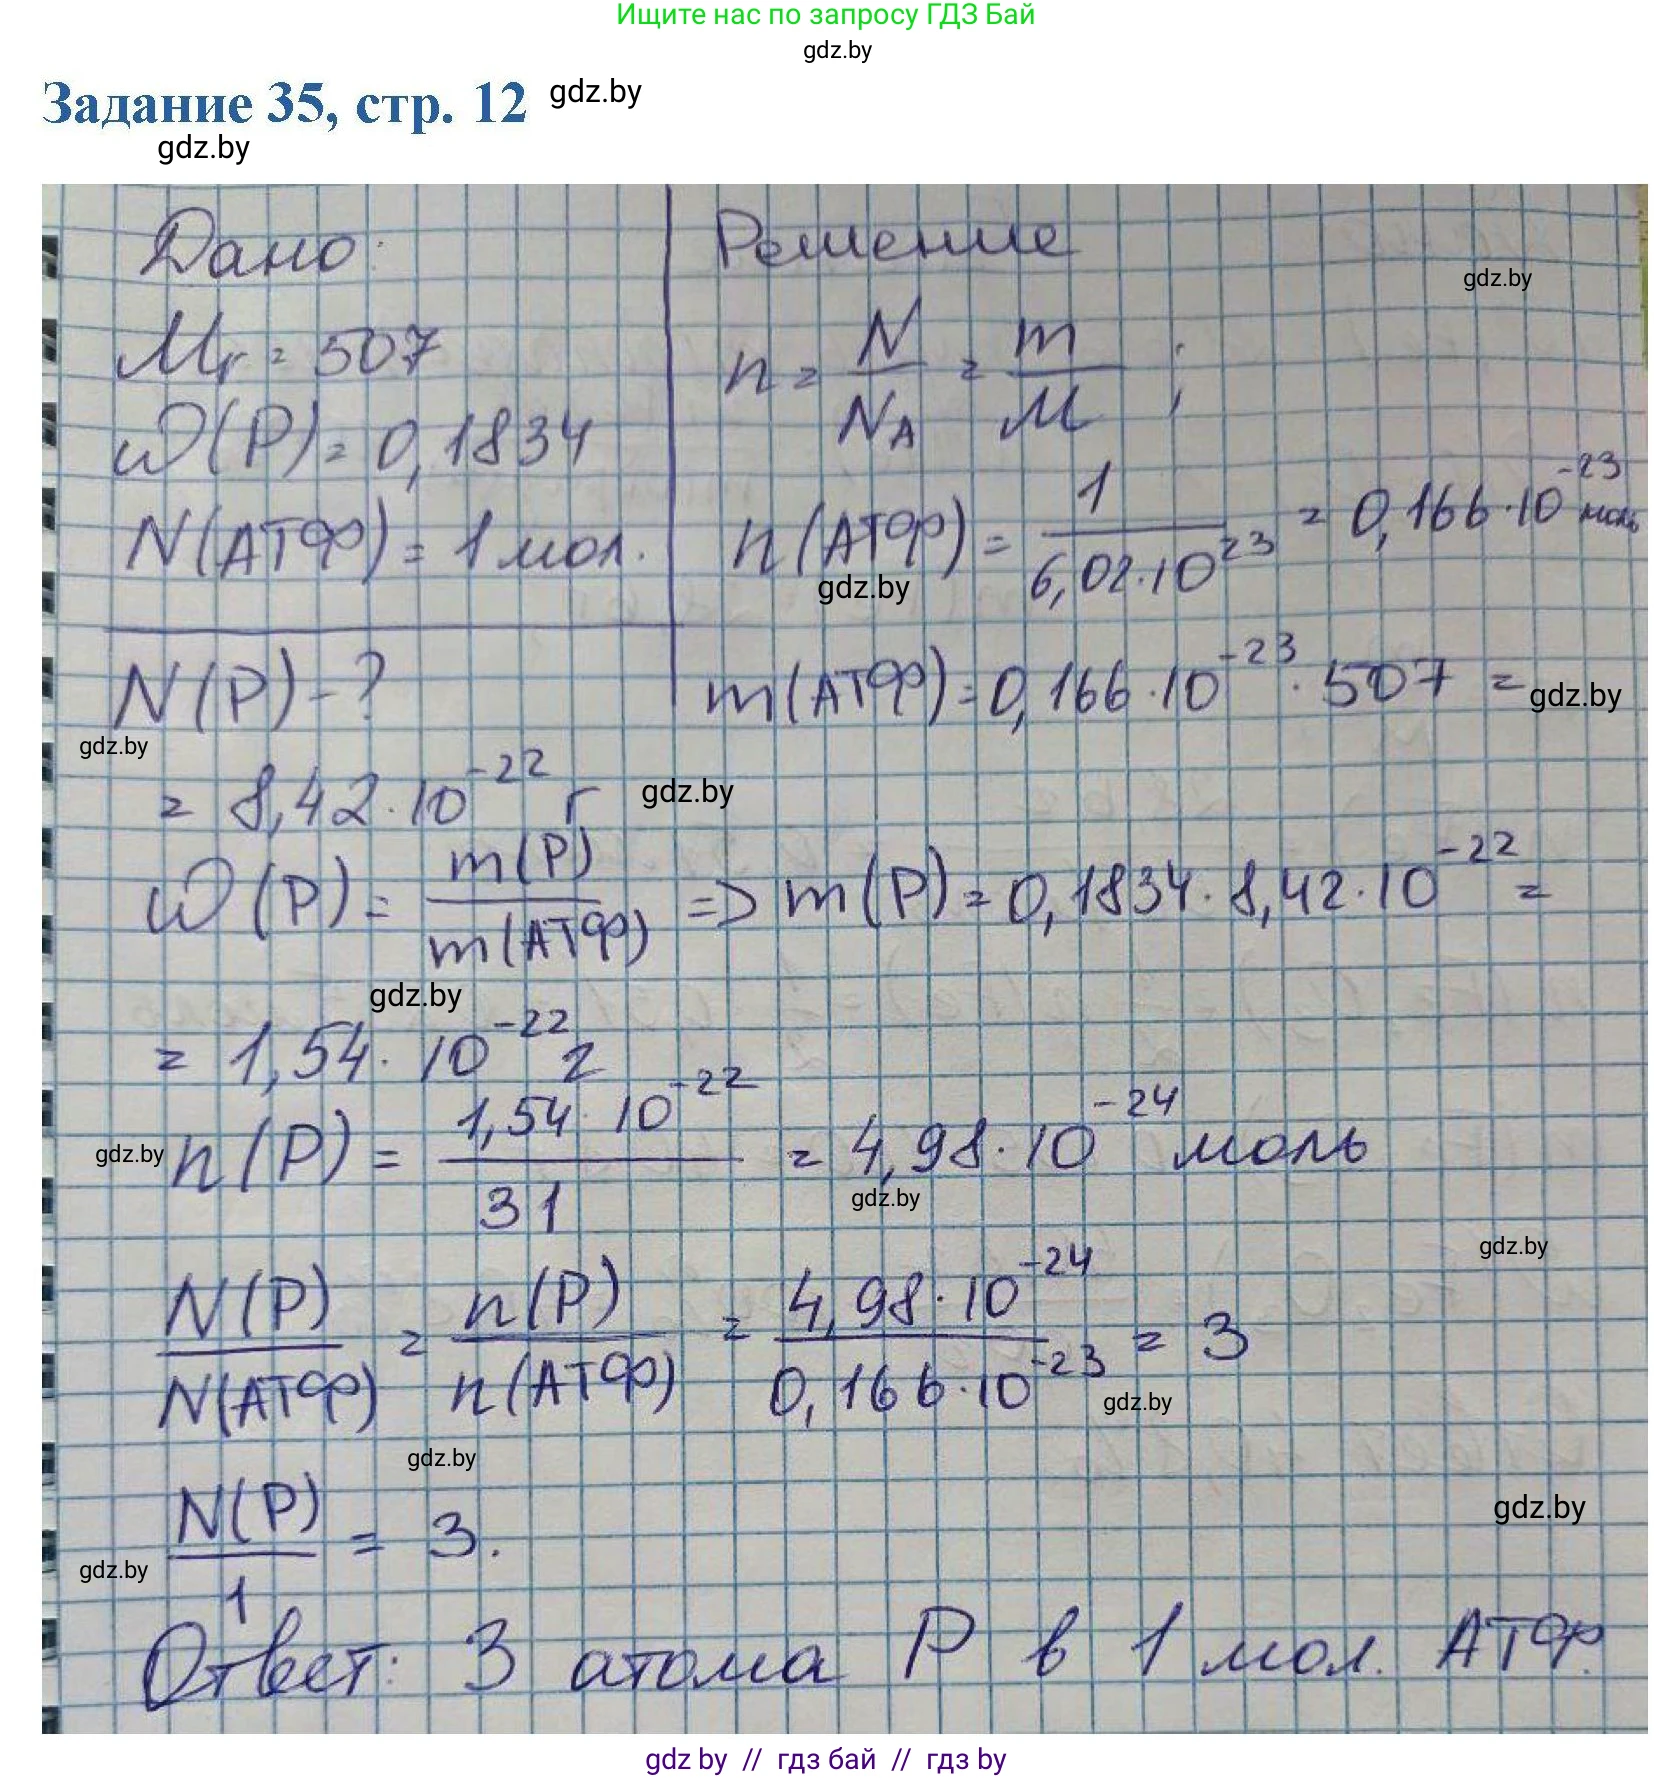 Ищите нас по запросу ГДЗ Бай
gdz.by
Задание 35, стр. 12 gdz.by
gdz.by
Дано: Решение
gdz.by
Mr = 507
n = N/N_A = m/M ;
ω(P) = 0,1834
N(АТФ) = 1 мол.
n(АТФ) = 1/(6,02·10^23) = 0,166·10^-23 моль
gdz.by
N(P) - ?
m(АТФ) = 0,166·10^-23 · 507 =
gdz.by
gdz.by
= 8,42·10^-22 г
gdz.by
ω(P) = m(P)/m(АТФ) => m(P) = 0,1834 · 8,42·10^-22 =
gdz.by
= 1,54·10^-22 г
gdz.by
n(P) = 1,54·10^-22/31 = 4,98·10^-24 моль
gdz.by
gdz.by
N(P)/N(АТФ) = n(P)/n(АТФ) = 4,98·10^-24/0,166·10^-23 = 3
gdz.by
gdz.by
N(P)/1 = 3.
gdz.by
gdz.by
Ответ: 3 атома P в 1 мол. АТФ.
gdz by // гдз бай // гдз by